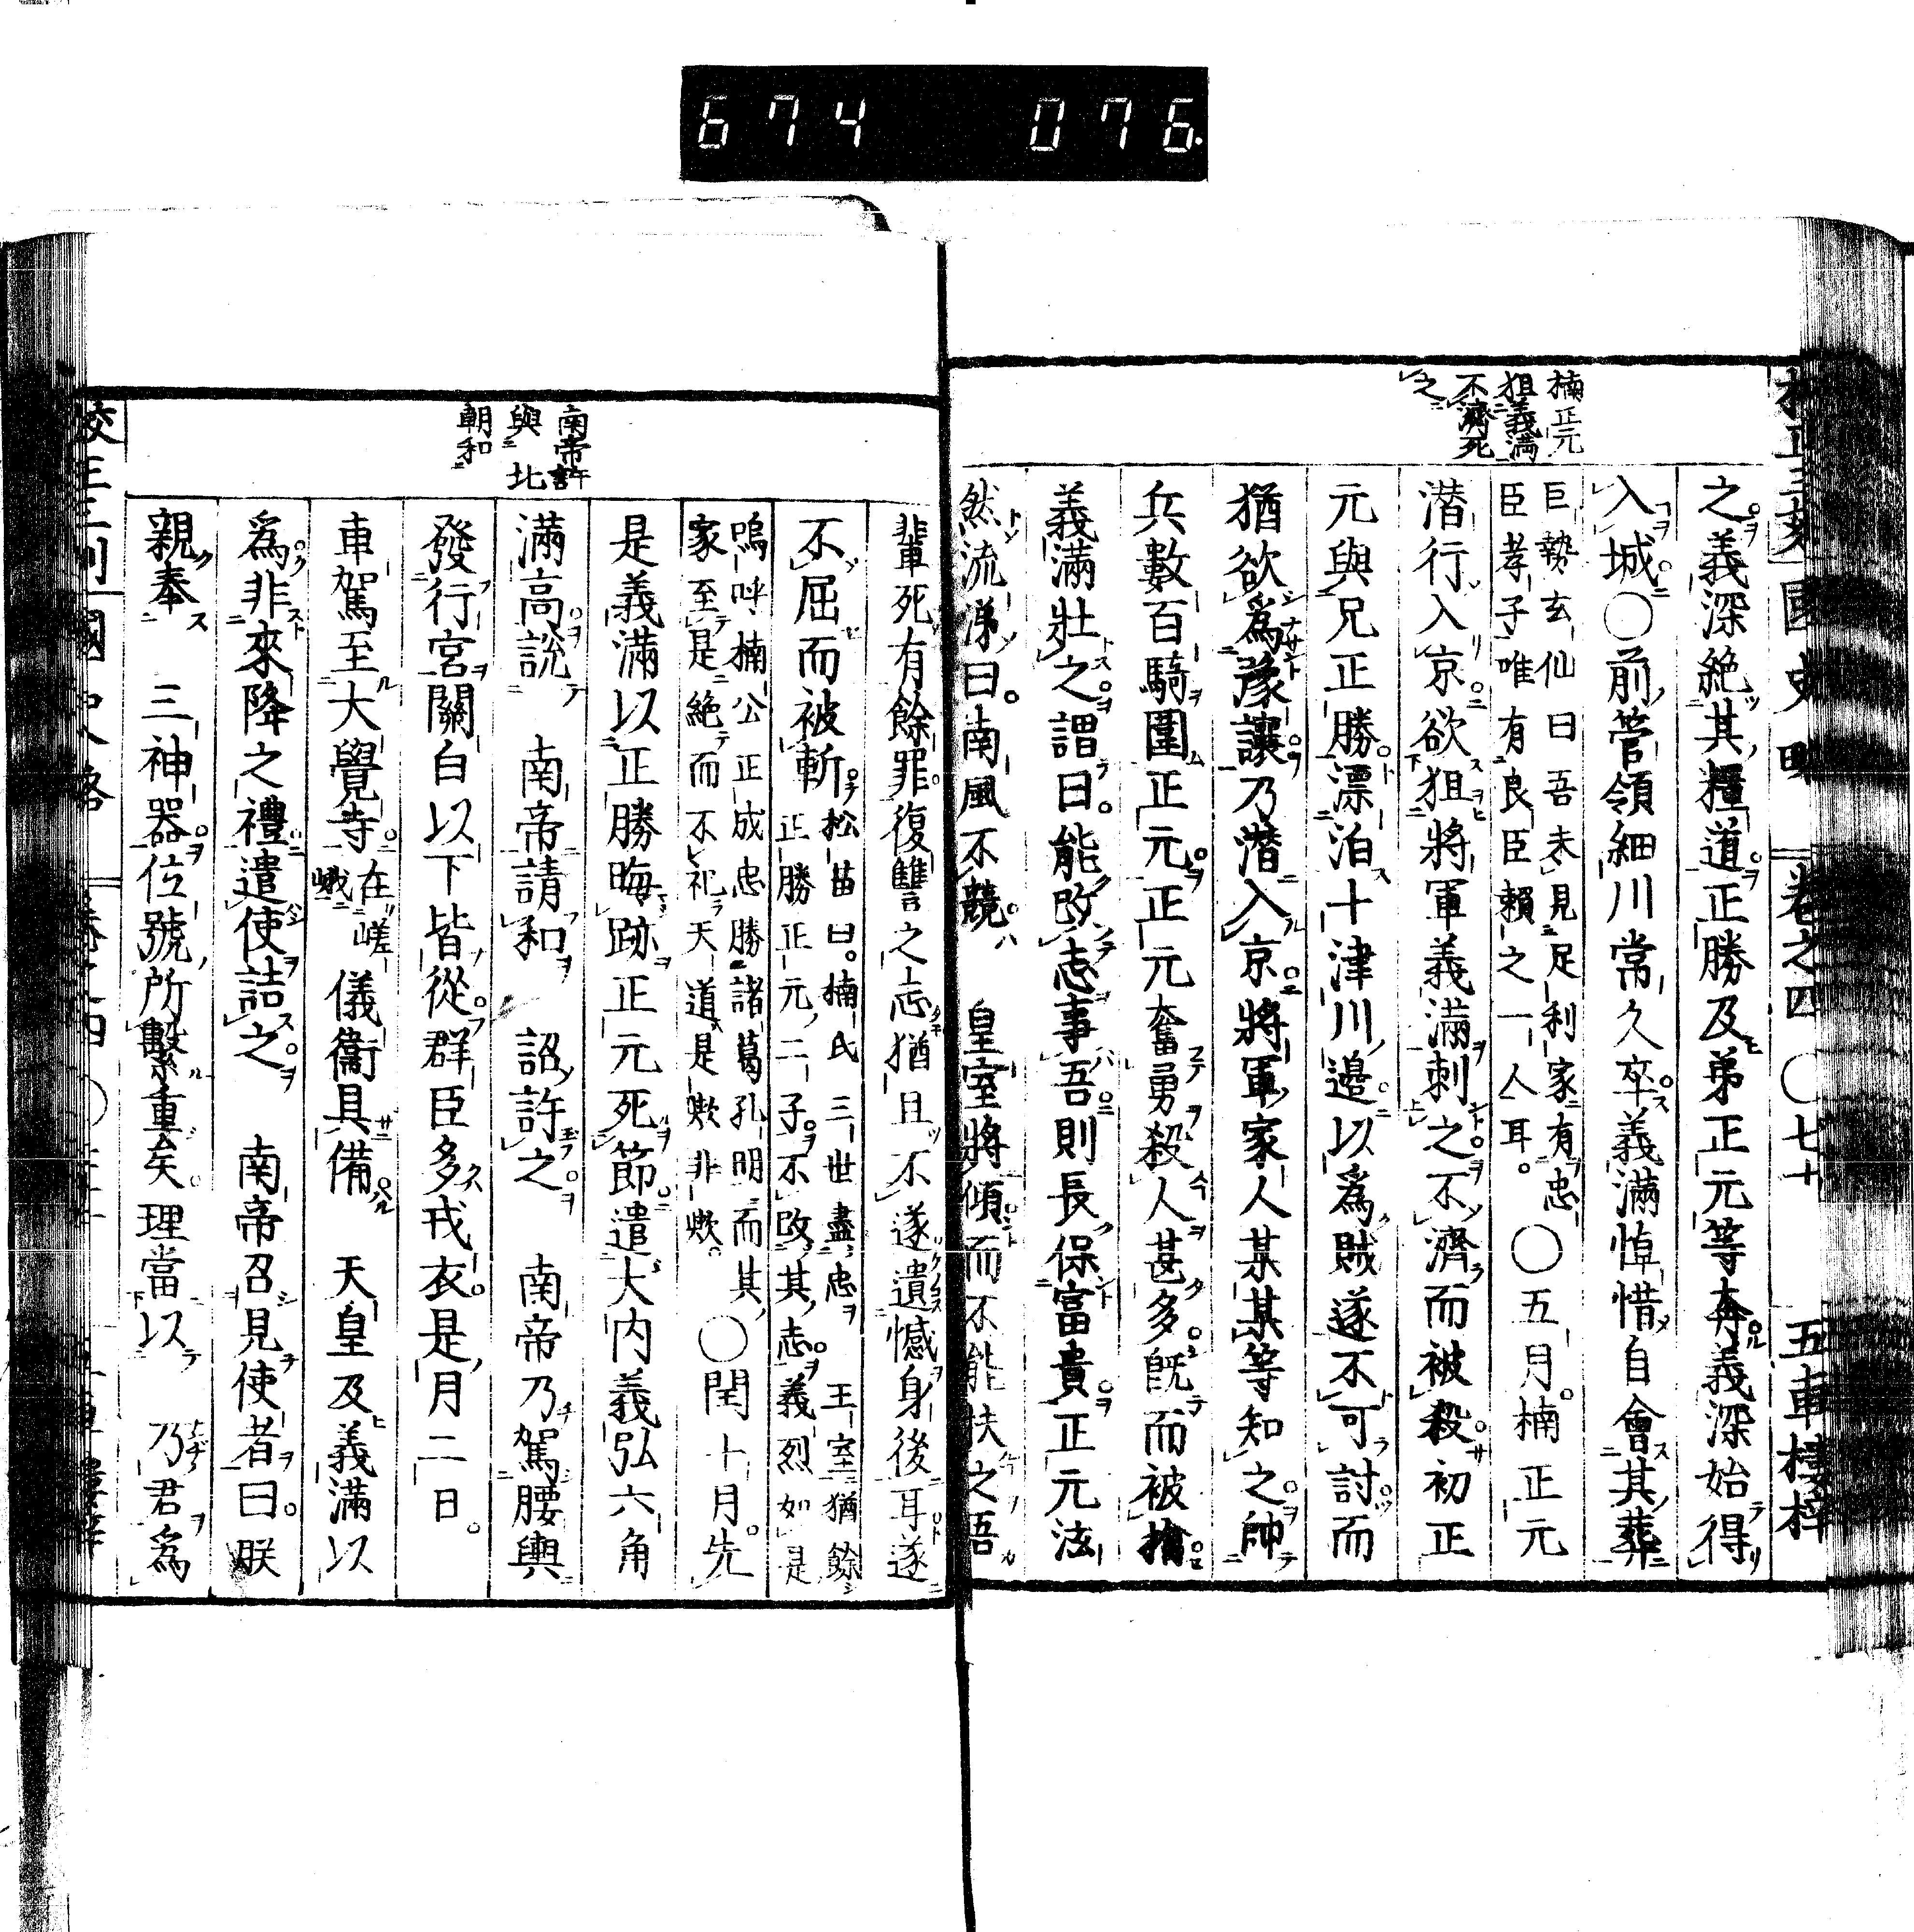 674 076
國史略 卷之四 〇七十 五車樓梓
楠正元
狙義滿
不濟死
之
之義深絶其糧道正勝及弟正元等奔義深始得
入城〇前管領細川常久卒義滿悼惜自會其葬
巨勢玄仙曰吾未見足利家有忠
臣孝子唯有良臣賴之一人耳。
〇五月楠正元
潜行入京欲狙將軍義滿刺之不濟而被殺初正
元與兄正勝漂泊十津川邊以爲賊遂不可討而
猶欲爲豫讓乃潜入京將軍家人某某等知之帥
兵數百騎圍正元正元奮勇殺人甚多既而被擒
義滿壯之謂曰能改志事吾則長保富貴正元法
然流涕曰南風不競 皇室將傾而不能扶之吾
南帝許
與北
朝和
輩死有餘罪復讐之志猶且不遂遺憾身後耳遂
不屈而被斬
松苗曰楠氏三世盡忠 王室猶餘
正勝正元二子不改其志義烈如是
嗚呼楠公正成忠勝諸葛孔明而其
家至是絶而不祀天道是歟非歟。
〇閏十月先
是義滿以正勝晦跡正元死節遣大内義弘六角
滿高説 南帝請和 詔許之 南帝乃駕腰輿
發行宮關白以下皆從群臣多戎衣是月二日
車駕至大覺寺
在嵯
峨
儀衞具備 天皇及義滿以
爲非來降之禮遣使詰之 南帝召見使者曰朕
親奉 三神器位號所繫重矣理當以 乃君爲